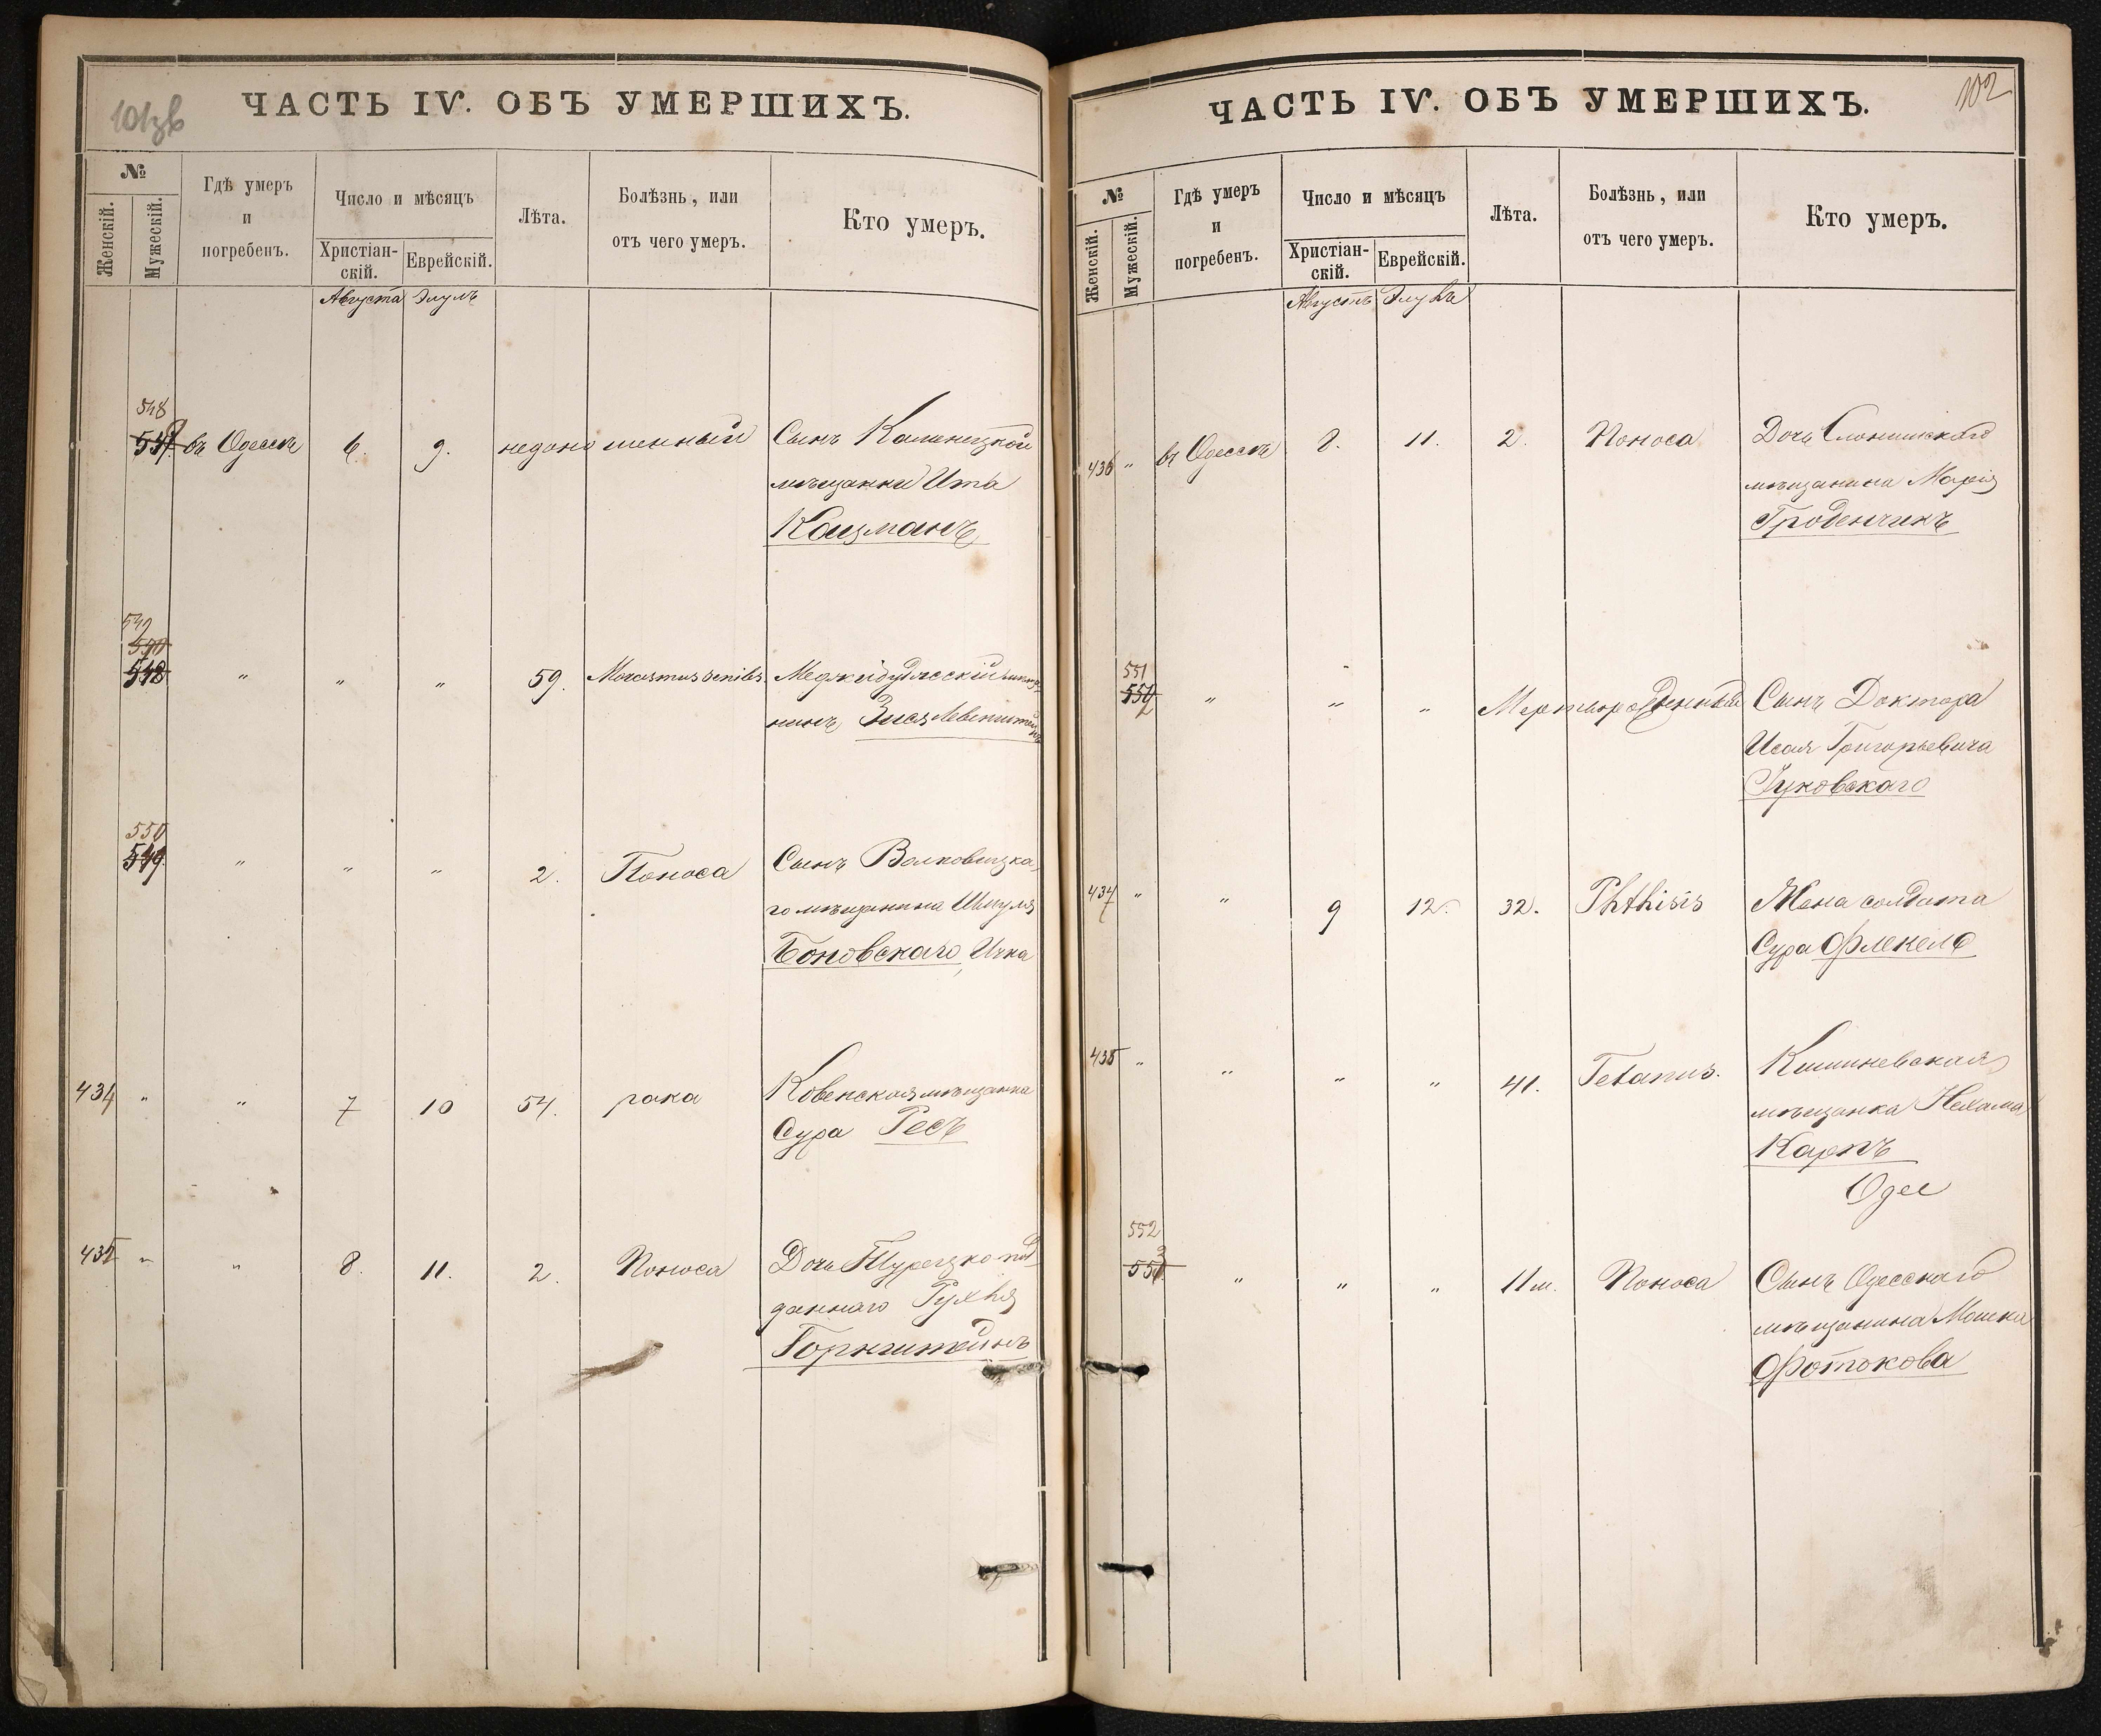 101зв
ЧАСТЬ IV. ОБЪ УМЕРШИХЪ.
№
Женскій.
Мужескій.
Гдѣ умеръ
и
погребенъ.
Число и мѣсяцъ
Христіан-
скій.
Еврейскій.
Лѣта.
Болѣзнь, или
отъ чего умеръ.
Кто умеръ.
Августа Элулъ
548
въ Одессѣ 6. 9. недоношенный Сынъ Каменецкой
мѣщанки Ита
Кацманъ
549
518
" " " 59. Marasmus senilis
нинъ Зисъ Левенштейнъ
550
549
" " " 2. Поноса Сынъ Волковицка
го мѣщанина Шмуля
Боновскаго, Ицка
434 " " 7 10 54. рака Ковенская мѣщанка
Сура Гесъ
435 " " 8. 11. 2. Поноса Дочь Турецко под
даннаго Рухля
Горнштейнъ
102
ЧАСТЬ IV. ОБЪ УМЕРШИХЪ.
№
Женскій.
Мужескій.
Гдѣ умеръ
и
погребенъ.
Число и мѣсяцъ
Христіан-
скій.
Еврейскій.
Лѣта.
Болѣзнь, или
отъ чего умеръ.
Кто умеръ.
Августъ Элулъ
436 " въ Одессѣ 8. 11. 2. Поноса Дочь Слонимскаго
мѣщанина Марія
Гроденчикъ
551
" " " Мертворожденный Сынъ Доктора
Исая Григорьевича
Гуковскаго
437 " " 9 12. 32. Phthisis Жена солдата
Сура Френкель
438 " " " " 41. Tetanus. Кишиневская
мѣщанка Нехама
Карпъ
Одес
552
" " " 11 м. Поноса Сынъ Одесскаго
мѣщанина Мошка
Фотокова